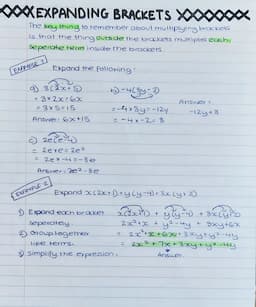 EXPANDING BRACKETS
The key thing to remember about multiplying brackets
is that the thing outside the brackets multiplies each
seperate term inside the brackets.
EXAMPLE 1
Expand the following:
a) 3(2x+5)
= 3×2x = 6x
= 3×5 = 15
Answer: 6x+15
b) -4(3y-2)
= -4×3y = -12y
= -4×-2 = 8
Answer:
-12y+8
c) 2e(e-4)
= 2e×e = 2e²
= 2e×-4 = -8e
Answer: 2e²-8e
EXAMPLE 2
Expand x(2x+1)+y(y-4)+3x(y+2)
1) Expand each bracket
seperately.
2) Group together
like terms.
3) Simplify the expression.
x(2x+1) + y(y-4) + 3x(y+2)
2x²+x + y²-4y + 3xy+6x
= 2x²+x+6x+3xy+y²-4y
= 2x²+7x+3xy+y²-4y
Answer.